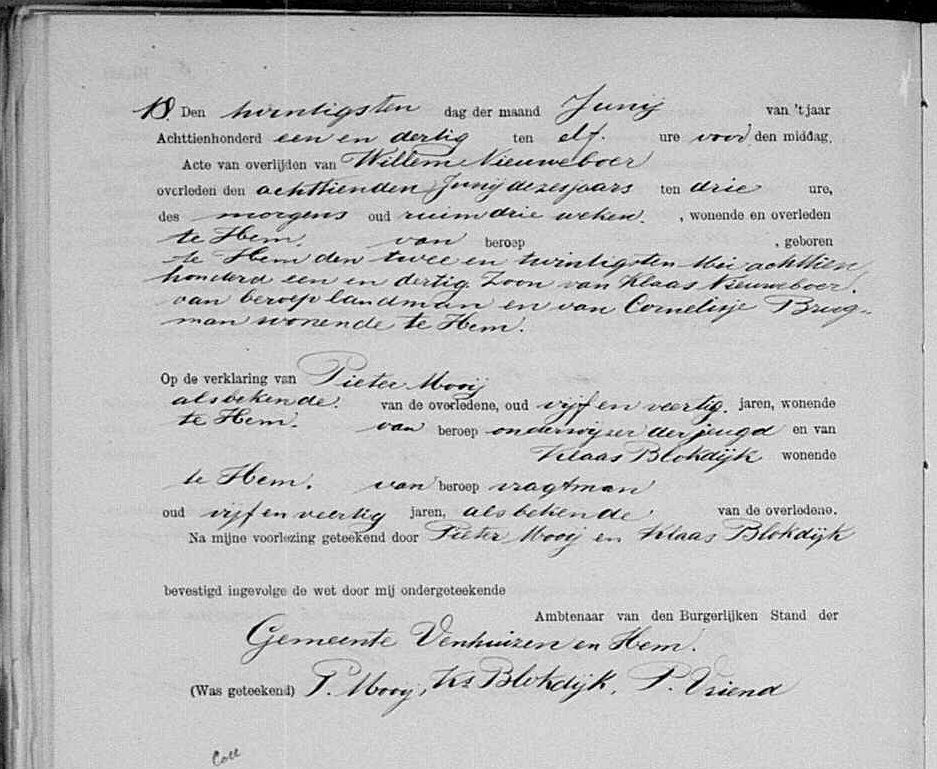 18. Den twintigsten dag der maand Junij van 't jaar
Achttienhonderd een en dertig ten elf. ure voor den middag,
Acte van overlijden van Willem Nieuweboer
overleden den achttienden Junij dezes jaars ten drie ure,
des morgens oud ruim drie weken. , wonende en overleden
te Hem. van beroep , geboren
te Hem den twee en twintigsten Mei achttien
honderd een en dertig. Zoon van Klaas Nieuweboer.
van beroep landman en van Cornelisje Brug=
man wonende te Hem.
Op de verklaring van Pieter Mooij
als bekende. van de overledene, oud vijf en veertig. jaren, wonende
te Hem. van beroep onderwijzer der jeugd en van
Klaas Blokdijk wonende
te Hem. van beroep vragtman
oud vijf en veertig jaren, als bekende van de overledene.
Na mijne voorlezing geteekend door Pieter Mooij en Klaas Blokdijk
bevestigd ingevolge de wet door mij ondergeteekende
Ambtenaar van den Burgerlijken Stand der
Gemeente Venhuizen en Hem.
(Was geteekend) P. Mooij, Ks Blokdijk, P. Vriend
Coll